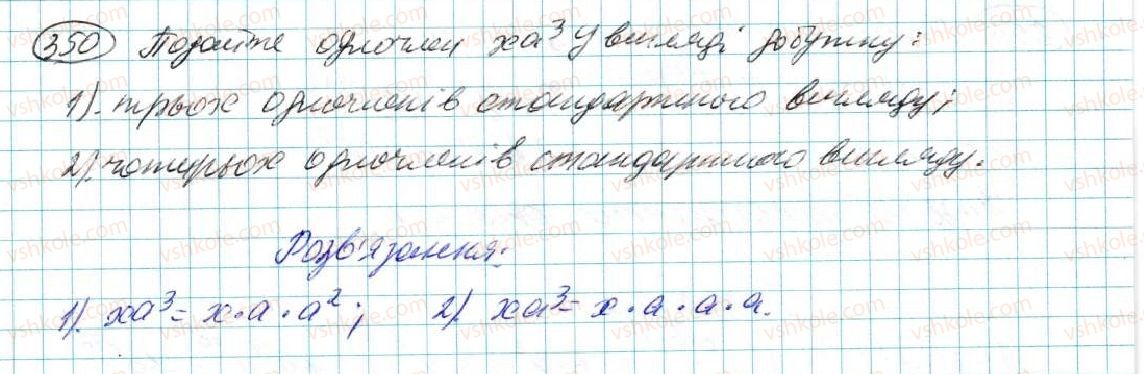 350 Подайте одночлен xa³ у вигляді добутку:
1). трьох одночленів стандартного вигляду;
2). чотирьох одночленів стандартного вигляду.
Розв'язання:
1). xa³ = x · a · a²; 2). xa³ = x · a · a · a.